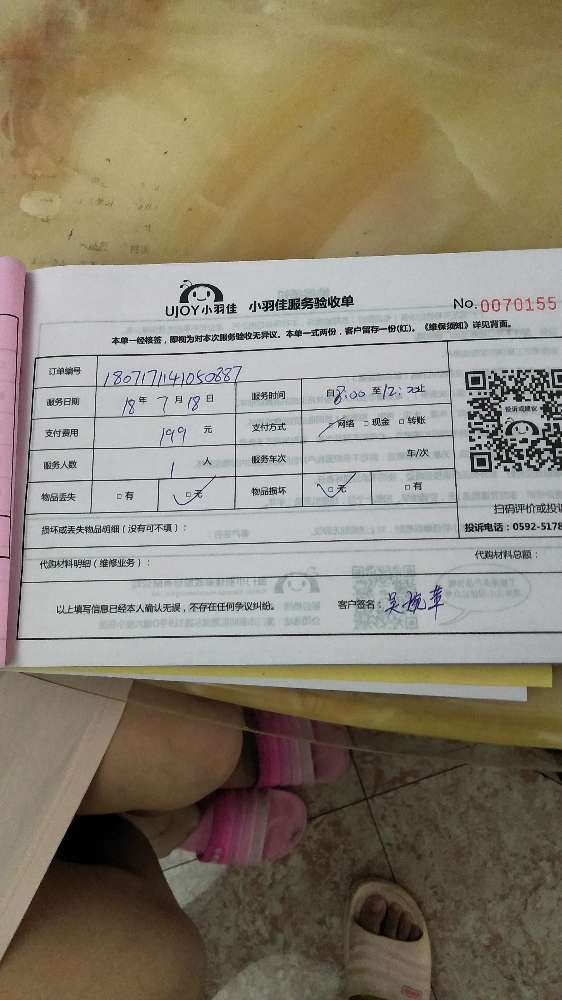 UJOY小羽佳 小羽佳服务验收单 No.0070155
本单一经核签,即视为对本次服务验收无异议。本单一式两份,客户留存一份(红)。《维保须知》详见背面。
订单编号 1807171141050887
服务日期 18年 7月 18日 服务时间 自8:00至12:00止
投诉或建议
支付费用 199元 支付方式 ☑网络 □现金 □转账
服务人数 1人 服务车次 车/次
物品丢失 □有 ☑无 物品损坏 ☑无 □有
扫码评价或投诉
损坏或丢失物品明细(没有可不填): 投诉电话:0592-5178
代购材料明细(维修业务): 代购材料总额:
以上填写信息已经本人确认无误,不存在任何争议纠纷。 客户签名: